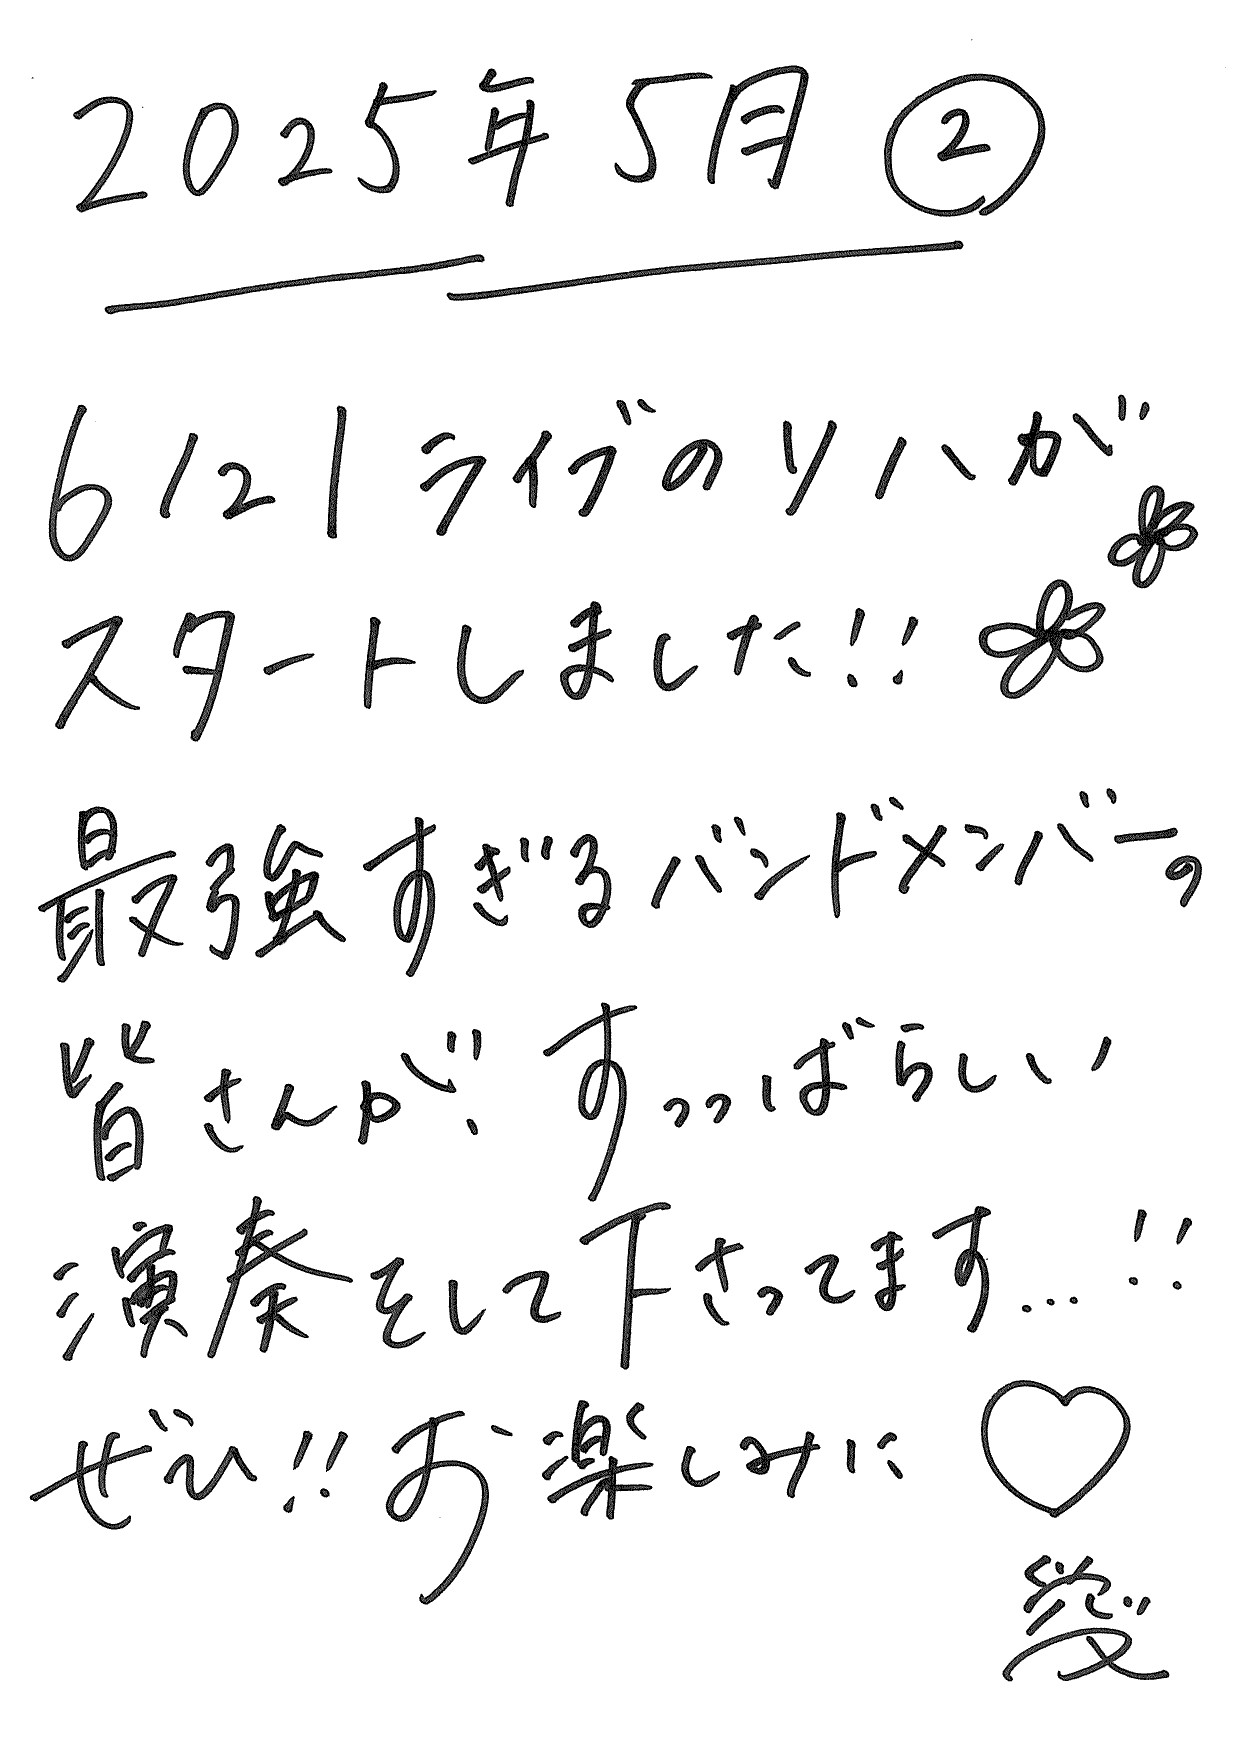 2025年5月②
6/21ライブのリハが
スタートしました!!
最強すぎるバンドメンバーの
皆さんが、すっっばらしい
演奏をして下さってます…!!
ぜひ!!お楽しみに♡
愛